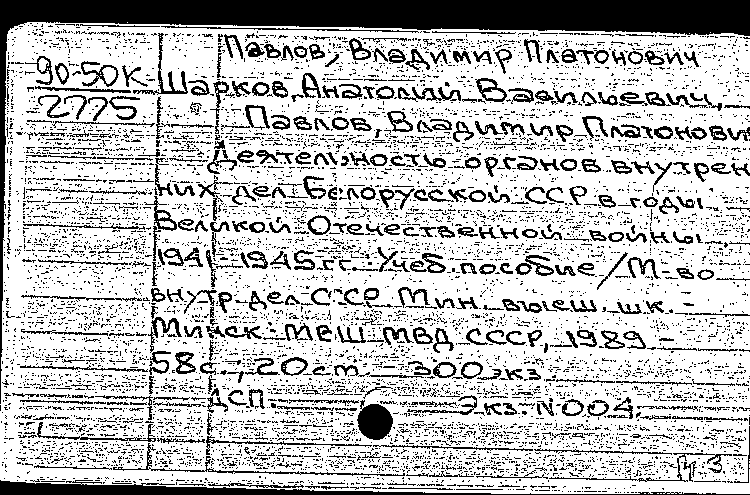 Павлов, Владимир Платонович
90-50К
2775
Шарков, Анатолий Васильевич,
Павлов, Владимир Платонови
Деятельность органов внутрен
них дел Белорусской ССР в годы
Великой Отечественной войны
1941-1945 гг.: Учеб. пособие / М-во
внутр. дел СССР. Мин. высш. шк. -
Минск: МВШ МВД СССР, 1989 -
58 с.; 20 см. - 300 экз.
ДСП. Экз. №004.